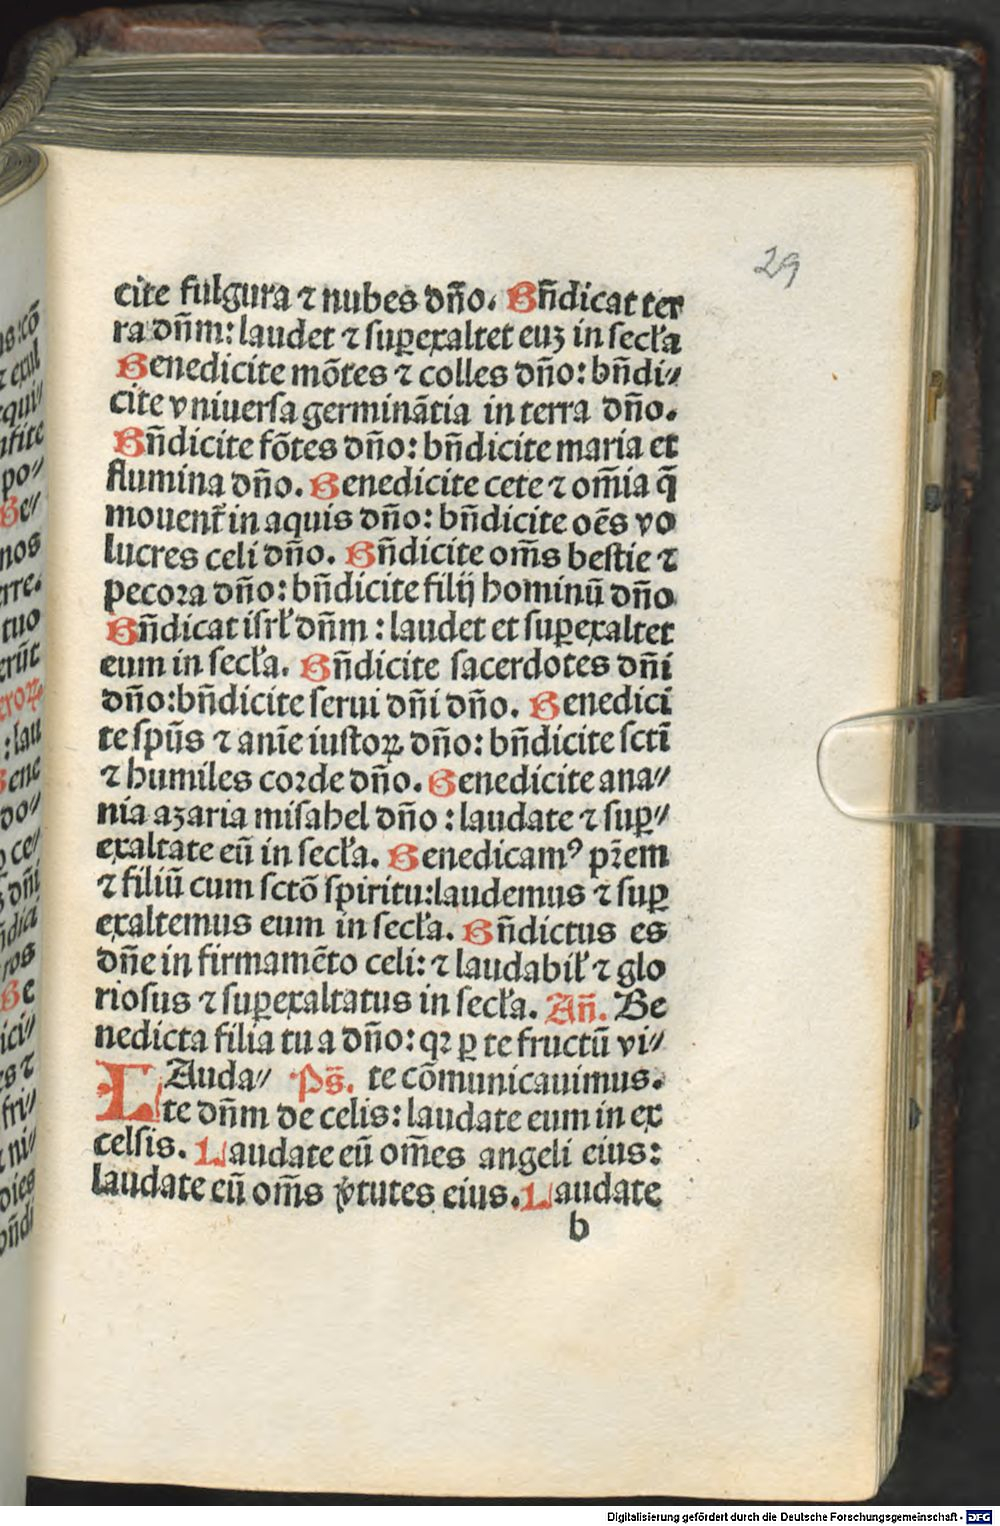 29
cite fulgura ⁊ nubes dño. Bñdicat ter
ra dñm: laudet ⁊ suꝑexaltet euʒ in secła
Benedicite mõtes ⁊ colles dño: bñdi⸗
cite vniuersa germinãtia in terra dño.
Bñdicite fõtes dño: bñdicite maria et
flumina dño. Benedicite cete ⁊ om̃ia q̃
mouent᷑ in aquis dño: bñdicite oẽs vo
lucres celi dño. Bñdicite om̃s bestie ⁊
pecoꝛa dño: bñdicite filij hominũ dño
Bñdicat isrł dñm: laudet et suꝑexaltet
eum in secła. Bñdicite sacerdotes dñi
dño: bñdicite serui dñi dño. Benedici
te spũs ⁊ anĩe iustoꝝ dño: bñdicite sctĩ
⁊ humiles coꝛde dño. Benedicite ana⸗
nia aʒaria misahel dño: laudate ⁊ suꝑ⸗
exaltate eũ in secła. Benedicamꝰ pr̃em
⁊ filiũ cum sctõ spiritu: laudemus ⁊ suꝑ
exaltemus eum in secła. Bñdictus es
dñe in firmamẽto celi: ⁊ laudabił ⁊ glo
riosus ⁊ suꝑexaltatus in secła. Añ. Be
nedicta filia tu a dño: qꝛ ꝑ te fructũ vi⸗
LAuda⸗ Ps̃. te cõmunicauimus.
te dñm de celis: laudate eum in ex
celsis. Laudate eũ om̃es angeli eius:
laudate eũ om̃s v̓tutes eius. Laudate
b
Digitalisierung gefördert durch die Deutsche Forschungsgemeinschaft - DFG